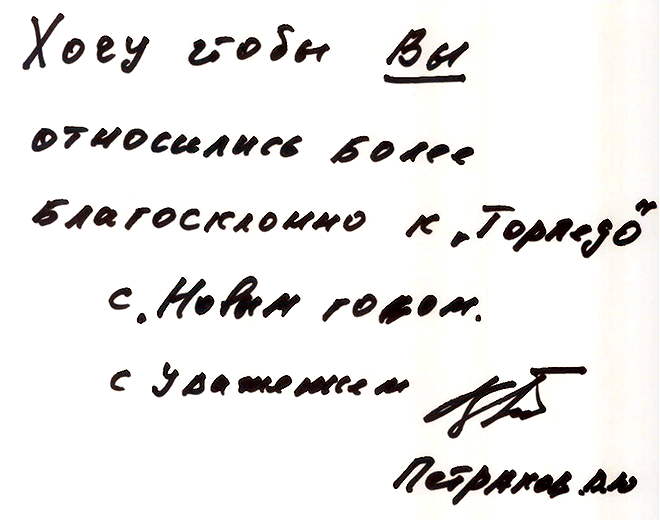 Хочу чтобы Вы
относились более
благосклонно к „Торпедо"
с. Новым годом.
с Уважением
Петраков